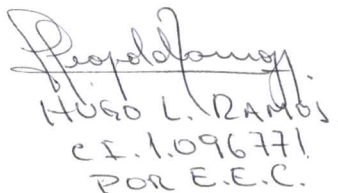 HUGO L. RAMOS
C.I. 1.096771
POR E.E.C.